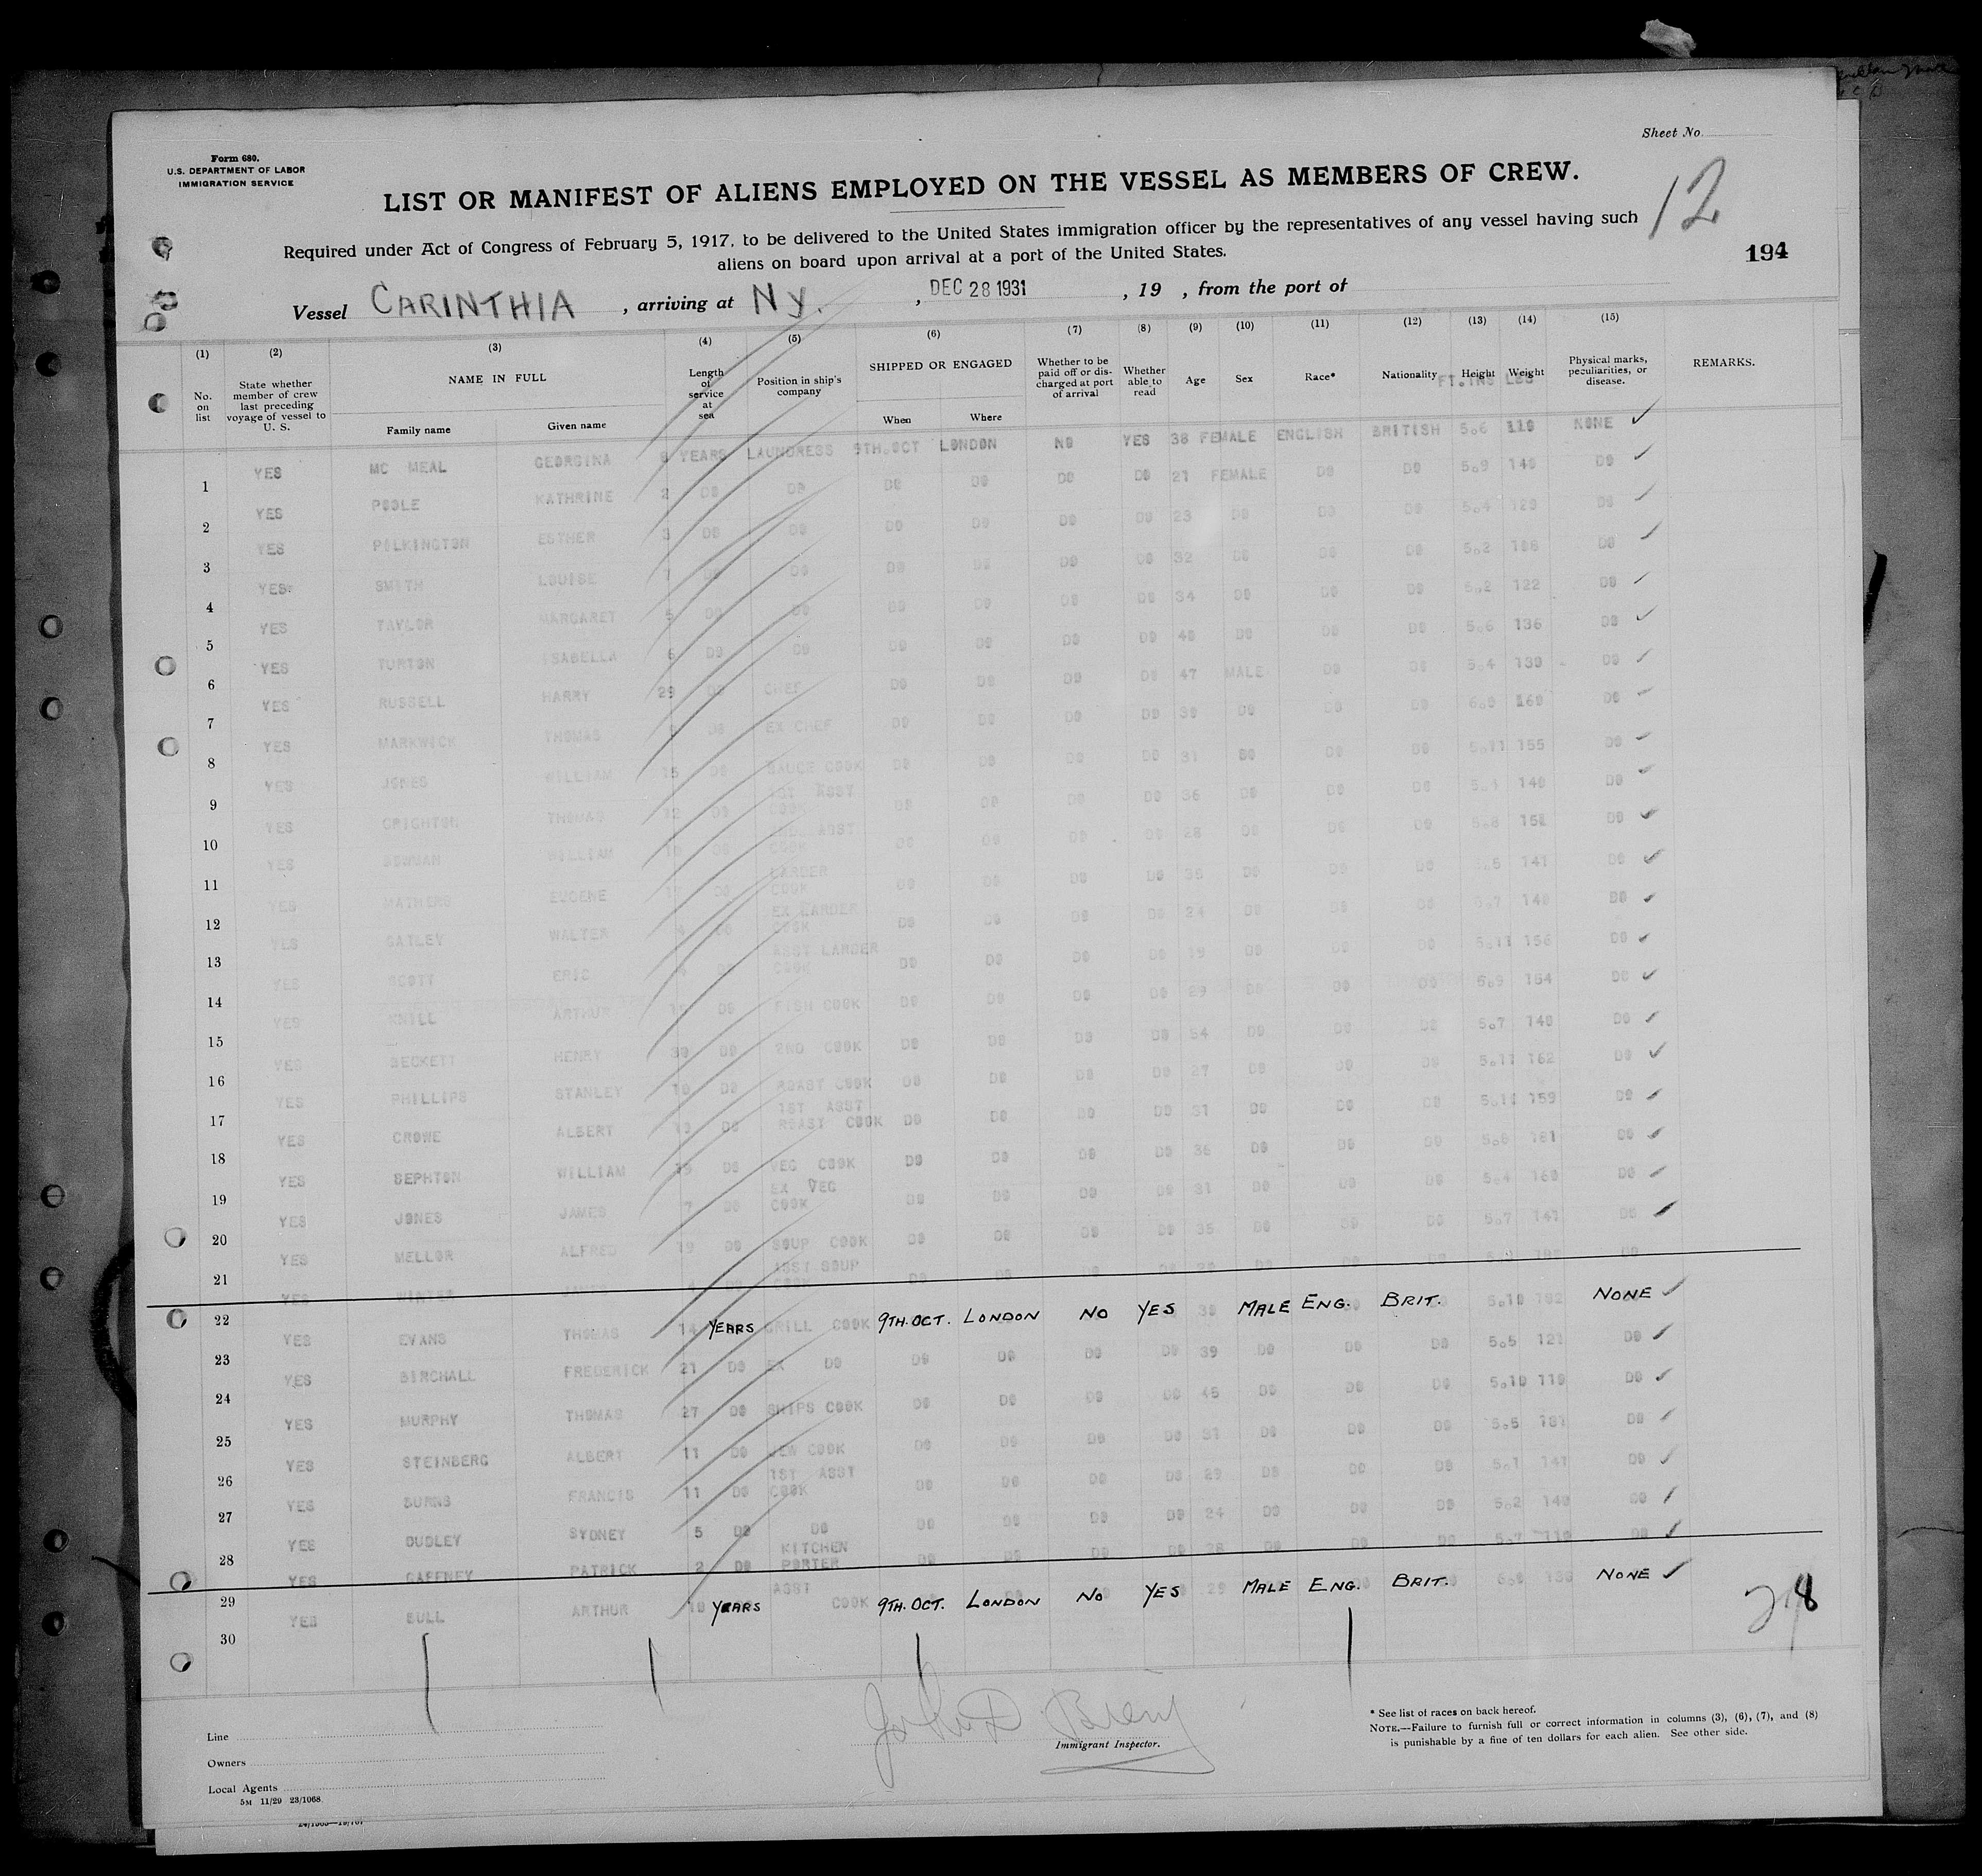 Sheet No.
Form 680.
U.S. DEPARTMENT OF LABOR
IMMIGRATION SERVICE
LIST OR MANIFEST OF ALIENS EMPLOYED ON THE VESSEL AS MEMBERS OF CREW.
12
Required under Act of Congress of February 5, 1917, to be delivered to the United States immigration officer by the representatives of any vessel having such
aliens on board upon arrival at a port of the United States.
194
Vessel CARINTHIA , arriving at Ny. , DEC 28 1931 , 19 , from the port of
(1) (2) (3) (4) (5) (6) (7) (8) (9) (10) (11) (12) (13) (14) (15)
No. on list State whether member of crew last preceding voyage of vessel to U. S. NAME IN FULL Length of service at sea Position in ship's company SHIPPED OR ENGAGED Whether to be paid off or discharged at port of arrival Whether able to read Age Sex Race* Nationality Height Weight Physical marks, peculiarities, or disease. REMARKS.
Family name Given name When Where
FT. INS LBS
YES MC MEAL GEORGINA 8 YEARS LAUNDRESS 9TH.OCT LONDON NO YES 38 FEMALE ENGLISH BRITISH 5.6 110 NONE
1 YES POOLE KATHRINE 2 DO DO DO DO DO DO 21 FEMALE DO DO 5.9 140 DO
2 YES PILKINGTON ESTHER 3 DO DO DO DO DO DO 23 DO DO DO 5.4 120 DO
3 YES SMITH LOUISE DO DO DO DO DO DO 32 DO DO DO 5.2 DO
4 YES TAYLOR MARGARET 5 DO DO DO DO DO DO 34 DO DO DO 5.2 122 DO
5 YES TURTON ISABELLA 6 DO DO DO DO DO DO 40 DO DO DO 5.6 136 DO
6 YES RUSSELL HARRY 29 DO CHEF DO DO DO DO 47 MALE DO DO 5.4 130 DO
7 YES MARKWICK THOMAS DO EX CHEF DO DO DO DO 39 DO DO DO 6.0 160 DO
8 YES JONES WILLIAM 15 DO SAUCE COOK DO DO DO DO 31 DO DO DO 5.11 155 DO
9 YES CRIGHTON THOMAS 12 DO 1ST ASST COOK DO DO DO DO 36 DO DO DO 140 DO
10 YES BOWMAN WILLIAM 10 DO 2ND ASST COOK DO DO DO DO 28 DO DO DO DO
11 YES MATHERS EUGENE DO LARDER COOK DO DO DO DO DO DO DO 141 DO
12 YES GATLEY WALTER DO EX LARDER COOK DO DO DO DO 24 DO DO DO 5.7 140 DO
13 YES SCOTT ERIC DO ASST LARDER COOK DO DO DO DO 19 DO DO DO 5.11 156 DO
14 YES KNILL ARTHUR DO FISH COOK DO DO DO DO 29 DO DO DO 5.9 154 DO
15 YES BECKETT HENRY 30 DO 2ND COOK DO DO DO DO 54 DO DO DO 5.7 140 DO
16 YES PHILLIPS STANLEY 10 DO ROAST COOK DO DO DO DO 27 DO DO DO 5.11 162 DO
17 YES CROWE ALBERT 13 DO 1ST ASST ROAST COOK DO DO DO DO 31 DO DO DO 159 DO
18 YES SEPHTON WILLIAM DO VEG COOK DO DO DO DO 36 DO DO DO DO
19 YES JONES JAMES 7 DO EX VEG COOK DO DO DO DO 31 DO DO DO 5.4 160 DO
20 YES MELLOR ALFRED 19 DO SOUP COOK DO DO DO DO 35 DO DO DO 5.7 141 DO
21 YES WINTER JAMES DO ASST SOUP COOK DO DO DO DO DO DO DO DO
22 YES EVANS THOMAS 14 YEARS GRILL COOK 9TH. OCT. LONDON NO YES MALE ENG. BRIT. 5.10 NONE
23 YES BIRCHALL FREDERICK 21 DO EX DO DO DO DO DO 39 DO DO DO 5.5 121 DO
24 YES MURPHY THOMAS 27 DO SHIPS COOK DO DO DO DO 45 DO DO DO 5.10 110 DO
25 YES STEINBERG ALBERT 11 DO JEW COOK DO DO DO DO 31 DO DO DO 5.5 DO
26 YES BURNS FRANCIS 11 DO 1ST ASST COOK DO DO DO DO 29 DO DO DO 141 DO
27 YES DUDLEY SYDNEY 5 DO DO DO DO DO DO 24 DO DO DO 5.2 140 DO
28 YES GAFFNEY PATRICK 2 DO KITCHEN PORTER DO DO DO DO DO DO DO 5.7 110 DO
29 YES BULL ARTHUR 10 YEARS ASST COOK 9TH. OCT. LONDON NO YES 29 MALE ENG. BRIT. NONE
30
Line
Owners
Local Agents
5M 11/29 23/1068
Immigrant Inspector.
* See list of races on back hereof.
NOTE.—Failure to furnish full or correct information in columns (3), (6), (7), and (8)
is punishable by a fine of ten dollars for each alien. See other side.